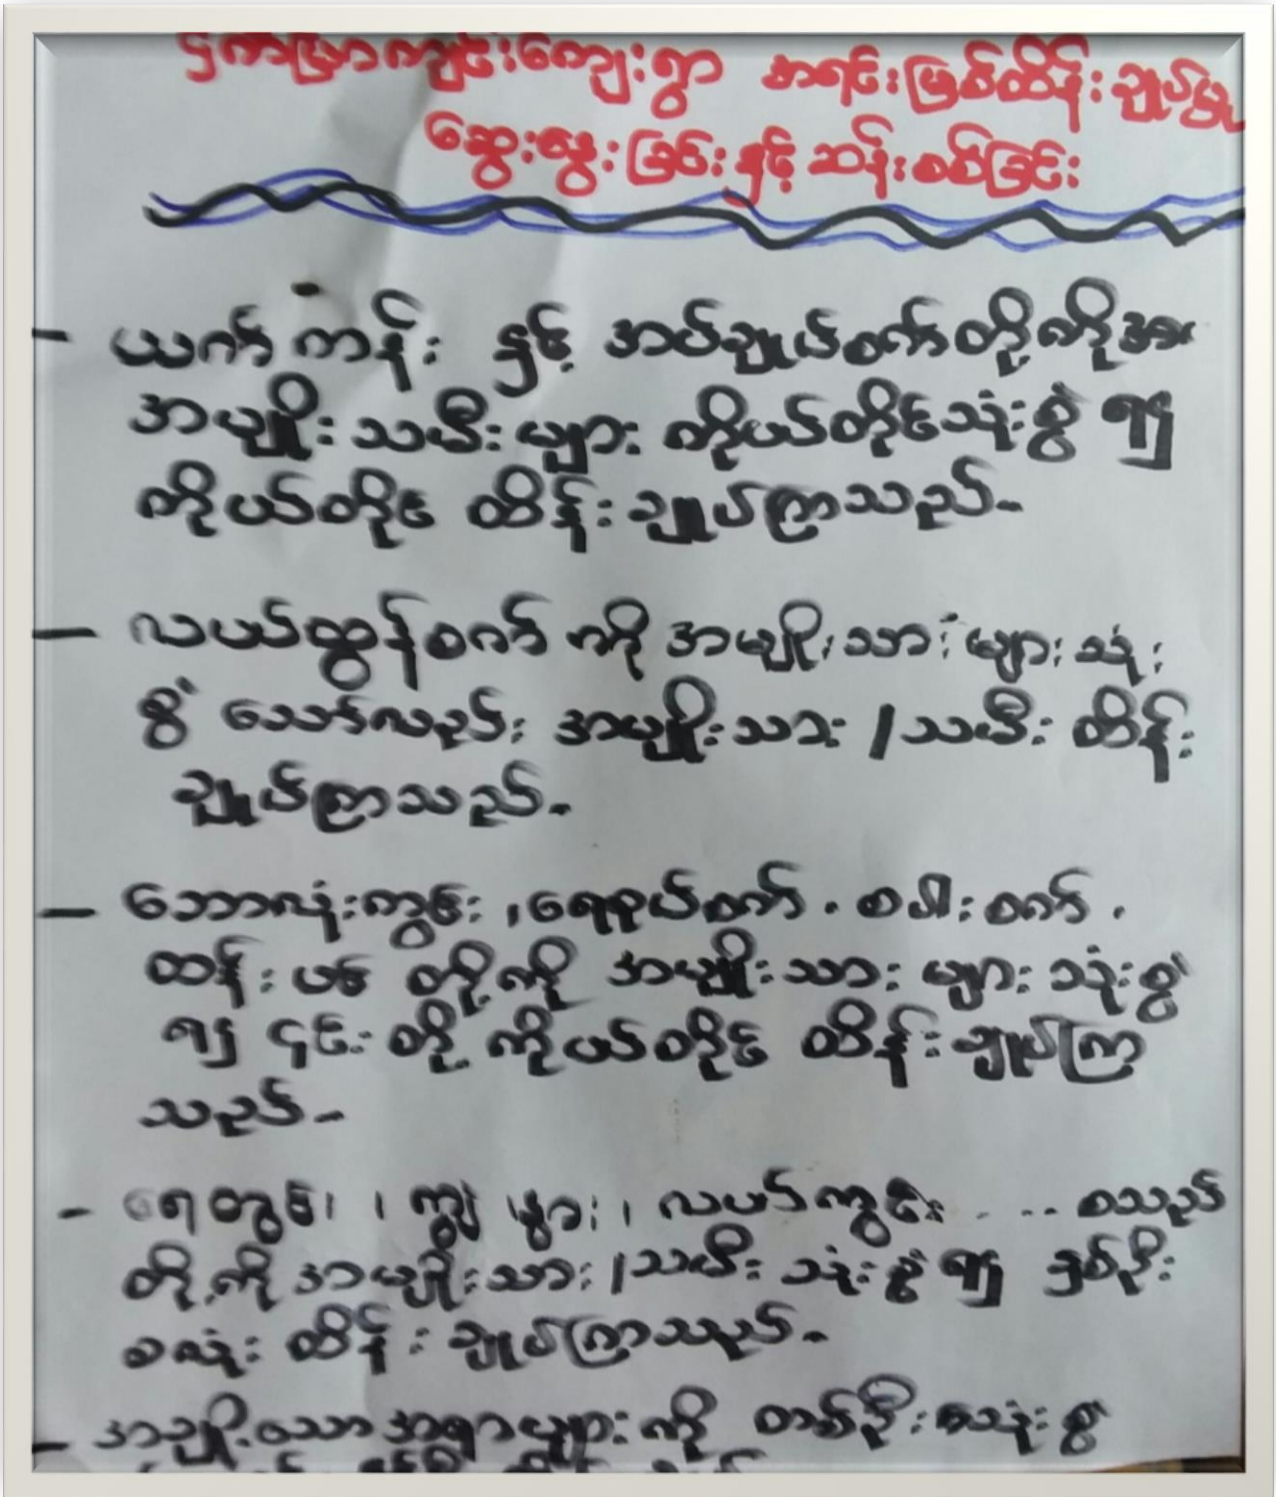 ကျေးရွာ အရင်းမြစ်ထိန်းချုပ်မှု
ဆွေးနွေးခြင်းနှင့် ဆန်းစစ်ခြင်း
- ယက်ကန်း နှင့် အပ်ချုပ်စက်တို့ကို
အမျိုးသမီးများ ကိုယ်တိုင်သုံးစွဲ ၍
ကိုယ်တိုင် ထိန်းချုပ်ကြသည်-
- လယ်ထွန်စက် ကို အမျိုးသားများ သုံး
စွဲ သော်လည်း အမျိုးသား /သမီး ထိန်း
ချုပ်ကြသည်-
- ဘောလုံးကွင်း ၊ရေစုပ်စက် . စပါးစက် .
ထန်းပင် တို့ကို အမျိုးသားများ သုံးစွဲ
၍ ၎င်းတို့ ကိုယ်တိုင် ထိန်းချုပ်ကြ
သည်-
- ရေတွင်း ၊ ကျွဲ ၊နွား ၊ လယ်ကွင်း . . .. စသည်
တို့ကို အမျိုးသား /သမီး သုံးစွဲ၍ နှစ်ဦး
စလုံး ထိန်းချုပ်ကြသည်-
- အချို့သောအရာများကို တစ်ဦး သုံးစွဲ